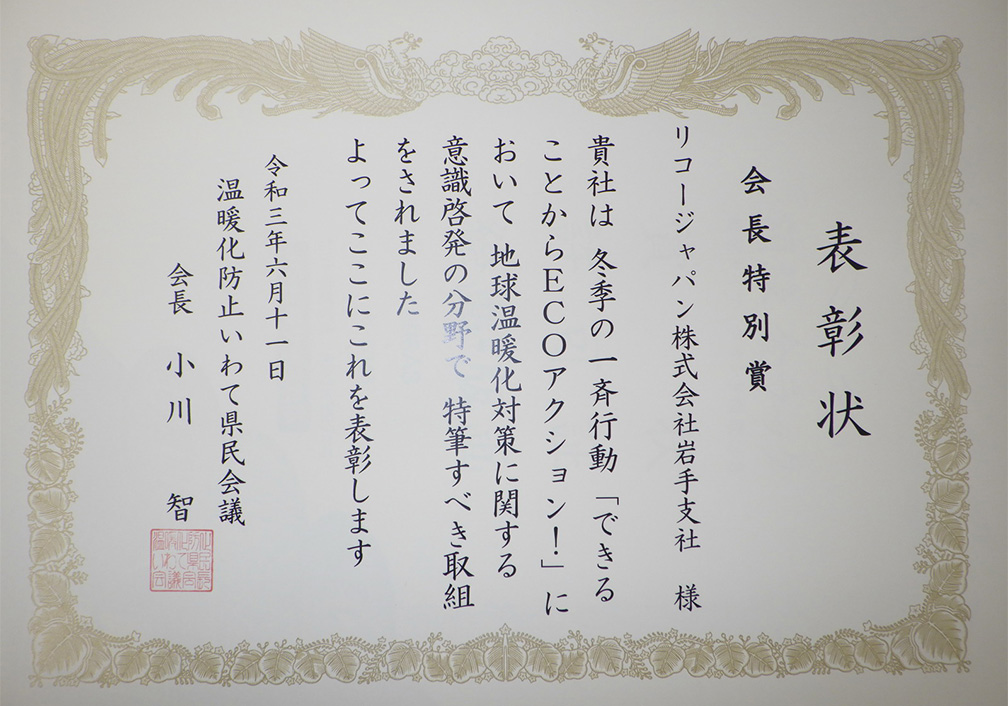 表彰状
会長特別賞
リコージャパン株式会社岩手支社 様
貴社は 冬季の一斉行動「できる
ことからECOアクション！」に
おいて 地球温暖化対策に関する
意識啓発の分野で 特筆すべき取組
をされました
よってここにこれを表彰します
令和三年六月十一日
温暖化防止いわて県民会議
会長 小川 智